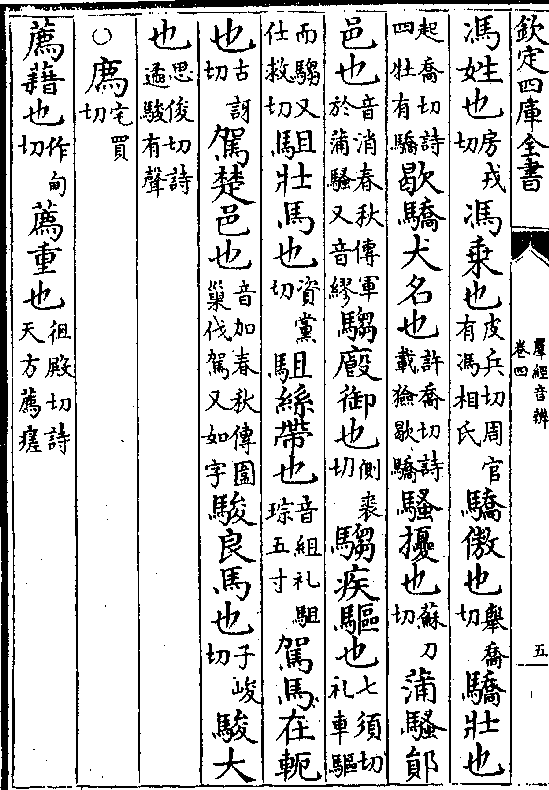 欽定四庫全書
羣經音辨
卷四
五
馮姓也房戎切馮乗也皮兵切周官有馮相氏驕傲也舉喬切驕壯也
起喬切詩四牡有驕歇驕犬名也許喬切詩載獫歇驕騷擾也蘇刀切蒲騷鄖
邑也音消春秋傳軍於蒲騷又音繆騶廏御也側裘切騶疾驅也七須切礼車驅
而騶又仕救切駔壯馬也資黨切駔絲帶也音組礼駔琮五寸駕馬在軛
也古訝切駕楚邑也音加春秋傳圍巢伐駕又如字駿良馬也子峻切駿大
也思俊切詩遹駿有聲
○廌宅買切
薦藉也作甸切薦重也徂殿切詩天方薦瘥